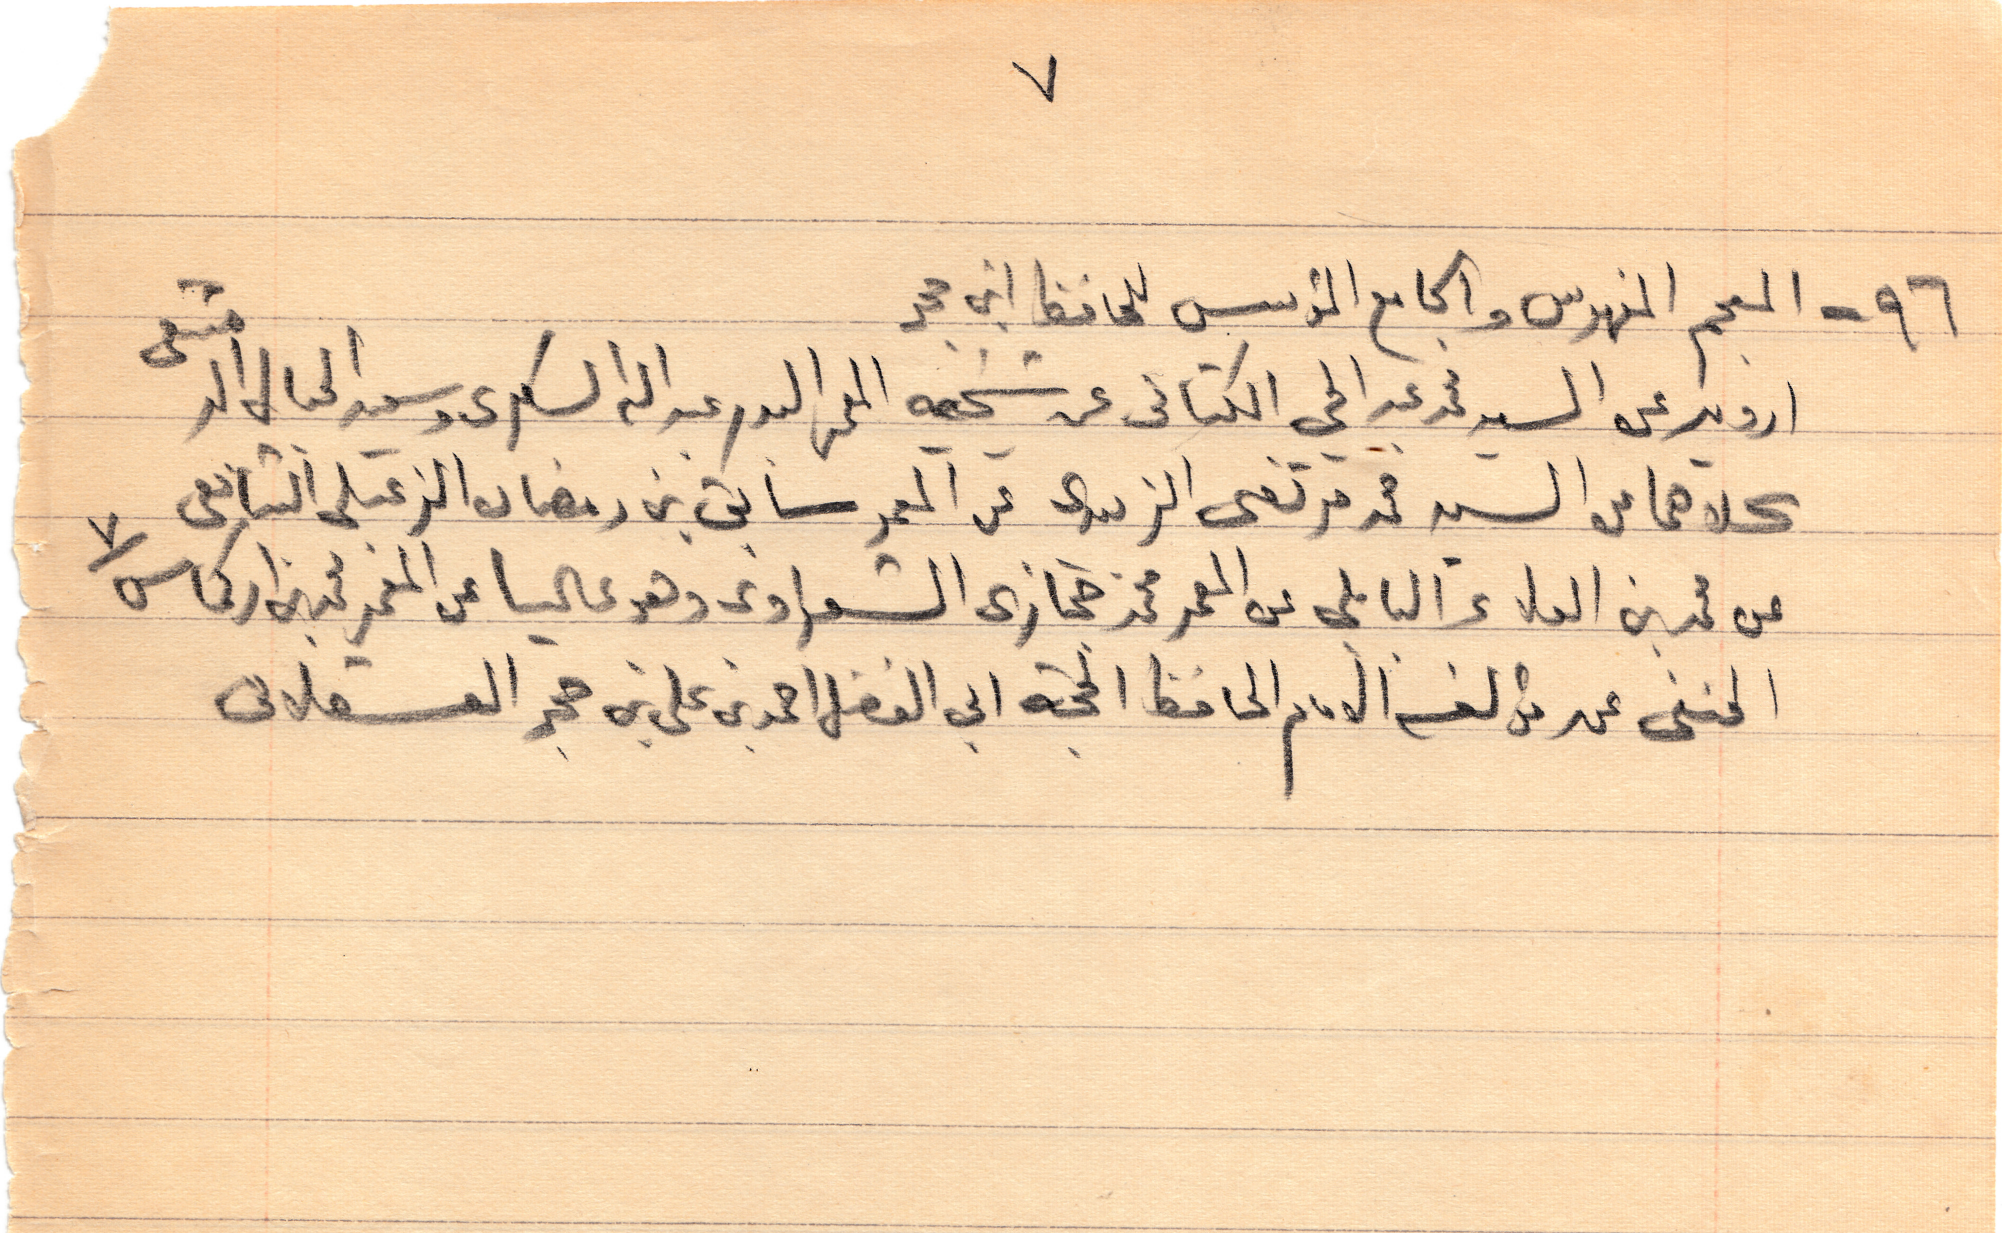 ٧
٩٦ - المعجم المفهرس والجامع المؤسس للحافظ ابن حجر
ارويه عن السيد محمد عبد الحي الكتاني عن شيخيه المعمر البدر عبد الله السكري وسعيد الحبال الدمشقي
كلاهما عن السيد محمد مرتضى الزبيدي عن المعمر سابق بن رمضان الزعبلي الشافعي
عن محمد بن العلاء البابلي عن المعمر محمد حجازي الشعراوي وهو عاليا عن المعمر محمد بن اركماس ٧
الحنفي عن مؤلفه الامام الحافظ الحجة ابي الفضل احمد بن علي بن حجر العسقلاني